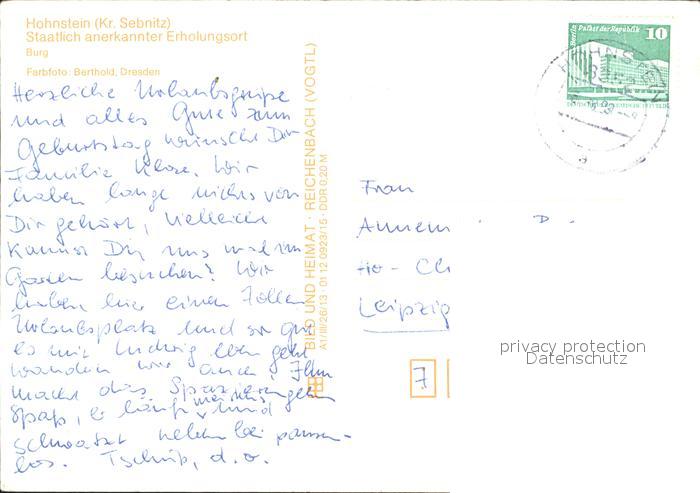 Hohnstein (Kr. Sebnitz)
Staatlich anerkannter Erholungsort
Burg
Farbfoto: Berthold, Dresden
Herzliche Urlaubsgrüße
und alles Gute zum
Geburtstag wünscht Dir
Familie Klose. Wir
haben lange nichts von
Dir gehört, vielleicht
kannst Du uns mal im
Garten besuchen? Wir
haben hier einen tollen
Urlaubsplatz und so gut
es mit Ludwig eben geht
wandern wir auch. Ihm
macht das Spazierengehen
Spaß, er läuft und
schwatzt neben bei pausen-
los. Tschüß, d. o.
BILD UND HEIMAT · REICHENBACH (VOGTL)
A1/III/26/13 · 01 12 0923/15 · DDR 0,20 M
Palast der Republik
10
Frau
Annem D.
Leipzig
7
privacy protection
Datenschutz